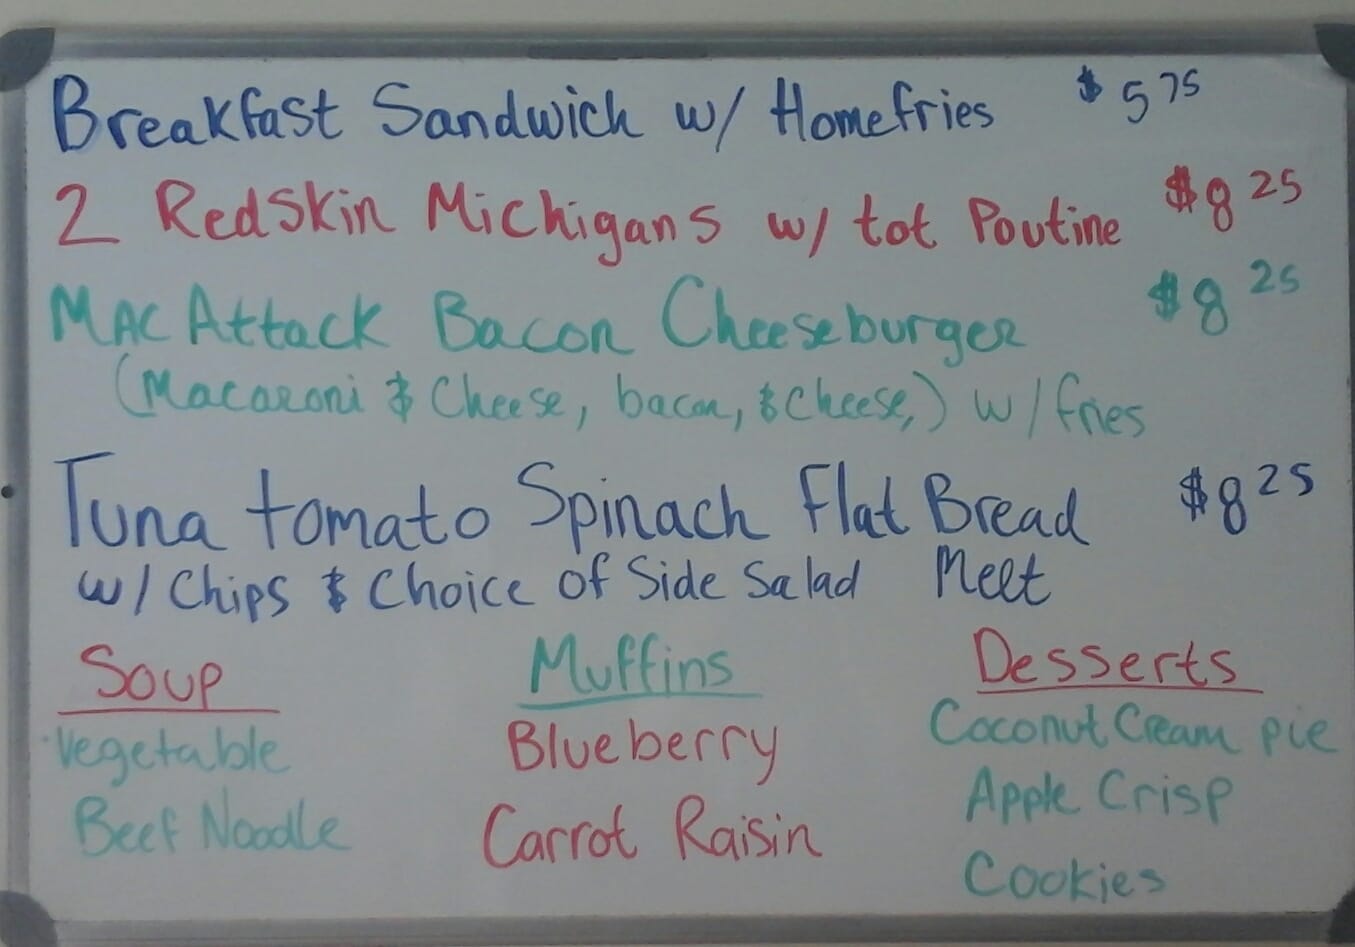 Breakfast Sandwich w/ Homefries $ 5 75
2 Redskin Michigans w/ tot Poutine $8 25
MAC Attack Bacon Cheeseburger $8 25
(Macaroni & Cheese, bacon, & Cheese,) w/ fries
Tuna tomato Spinach Flat Bread $8 25
w/ Chips & Choice of Side Salad Melt
Soup Muffins Desserts
Vegetable Blueberry Coconut Cream pie
Beef Noodle Carrot Raisin Apple Crisp
Cookies